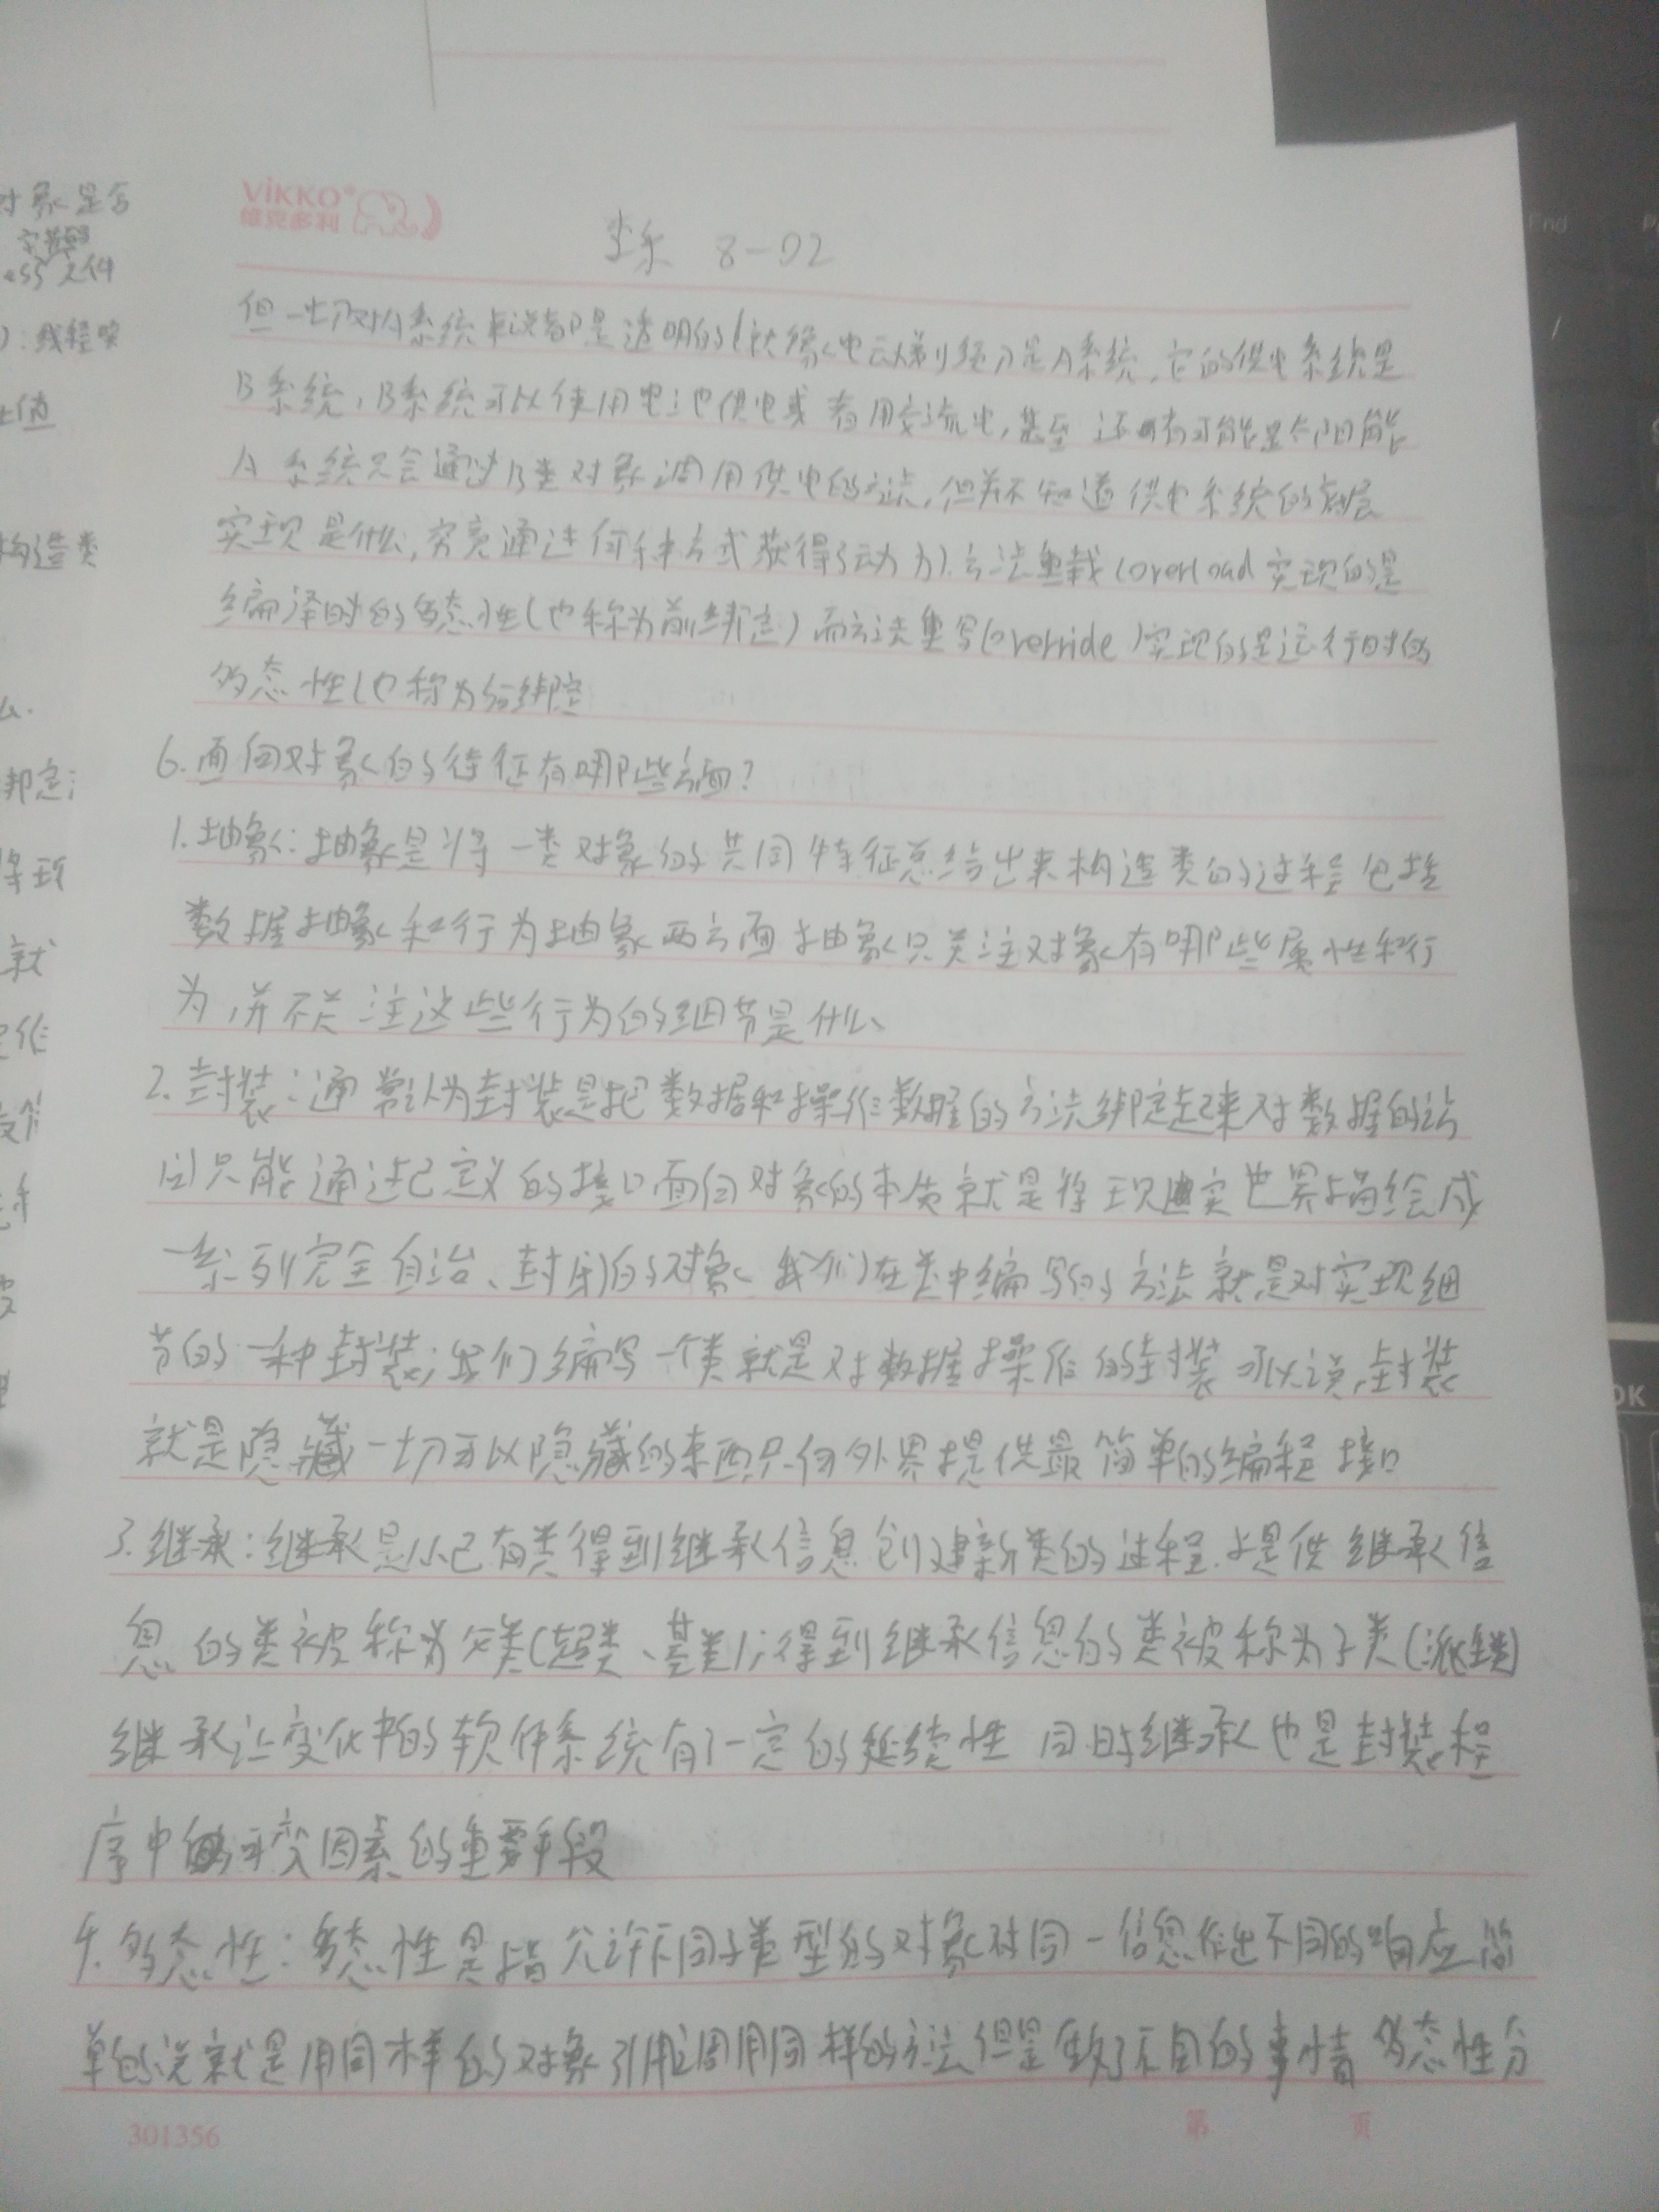 对象是否
ess 文件
构造类
就
VIKKO
维克多利
8-02
但一切对A系统来说都是透明的(就像电动剃须刀是A系统,它的供电系统是
B系统,B系统可以使用电池供电或者用交流电,甚至还有可能是太阳能
A系统只会通过B类对象调用供电的方法,但并不知道供电系统的底层
实现是什么,究竟通过何种方式获得了动力).方法重载(overload实现的是
编译时的多态性(也称为前绑定)而方法重写(override)实现的是运行时的
多态性(也称为后绑定
6.面向对象的特征有哪些方面?
1.抽象:抽象是将一类对象的共同特征总结出来构造类的过程包括
数据抽象和行为抽象两方面抽象只关注对象有哪些属性和行
为,并不关注这些行为的细节是什么
2.封装:通常认为封装是把数据和操作数据的方法绑定起来对数据的访
问只能通过已定义的接口面向对象的本质就是将现实世界描绘成
一系列完全自治、封闭的对象 我们在类中编写的方法就是对实现细
节的一种封装;我们编写一个类就是对数据操作的封装可以说,封装
就是隐藏一切可以隐藏的东西只向外界提供最简单的编程接口
3.继承:继承是从已有类得到继承信息创建新类的过程.提供继承信
息的类被称为父类(超类、基类);得到继承信息的类被称为子类(派生类)
继承让变化中的软件系统有了一定的延续性 同时继承也是封装程
序中的可变因素的重要手段
4.多态性:多态性是指允许不同子类型的对象对同一信息作出不同的响应简
单的说就是用同样的对象引用调用同样的方法但是做了不同的事情 多态性分
301356
第 页